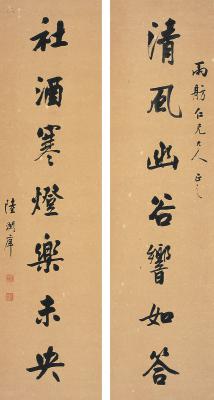 雨舫仁兄大人正之
清風幽谷響如答
社酒寒燈樂未央
陸潤庠